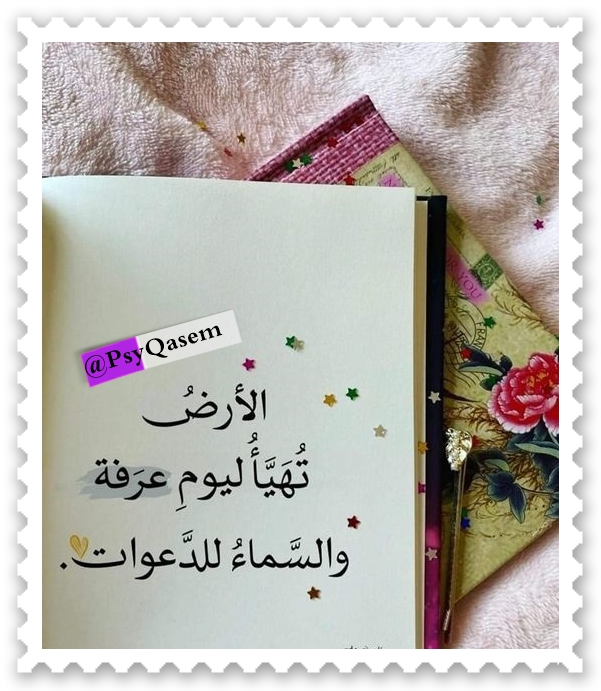 @PsyQasem
الأرضُ
تُهَيَّأُ ليومِ عرَفة
والسَّماءُ للدَّعوات.
YOU